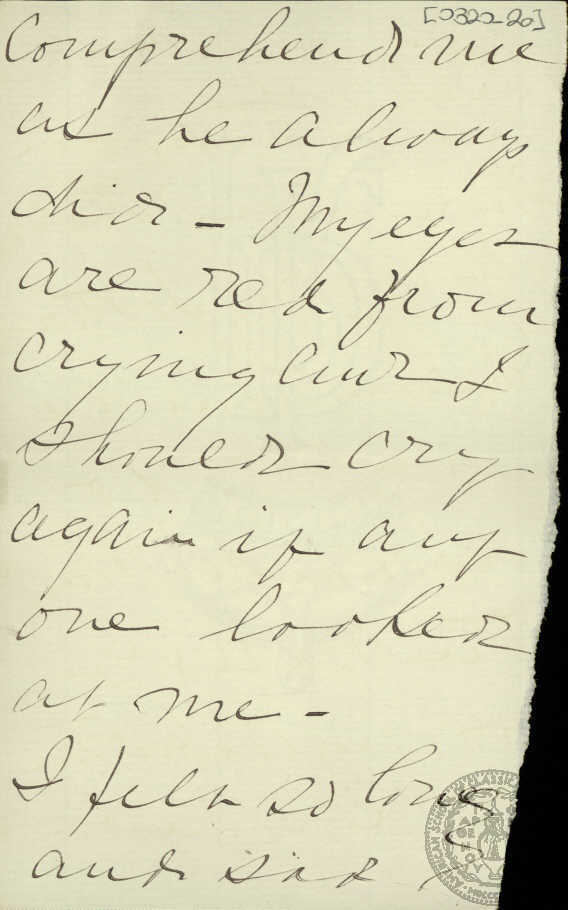 [0320-20]
Comprehend me
as he always
did - My eyes
are red from
crying and I
should cry
again if any
one looked
at me -
I felt so lone
and sad